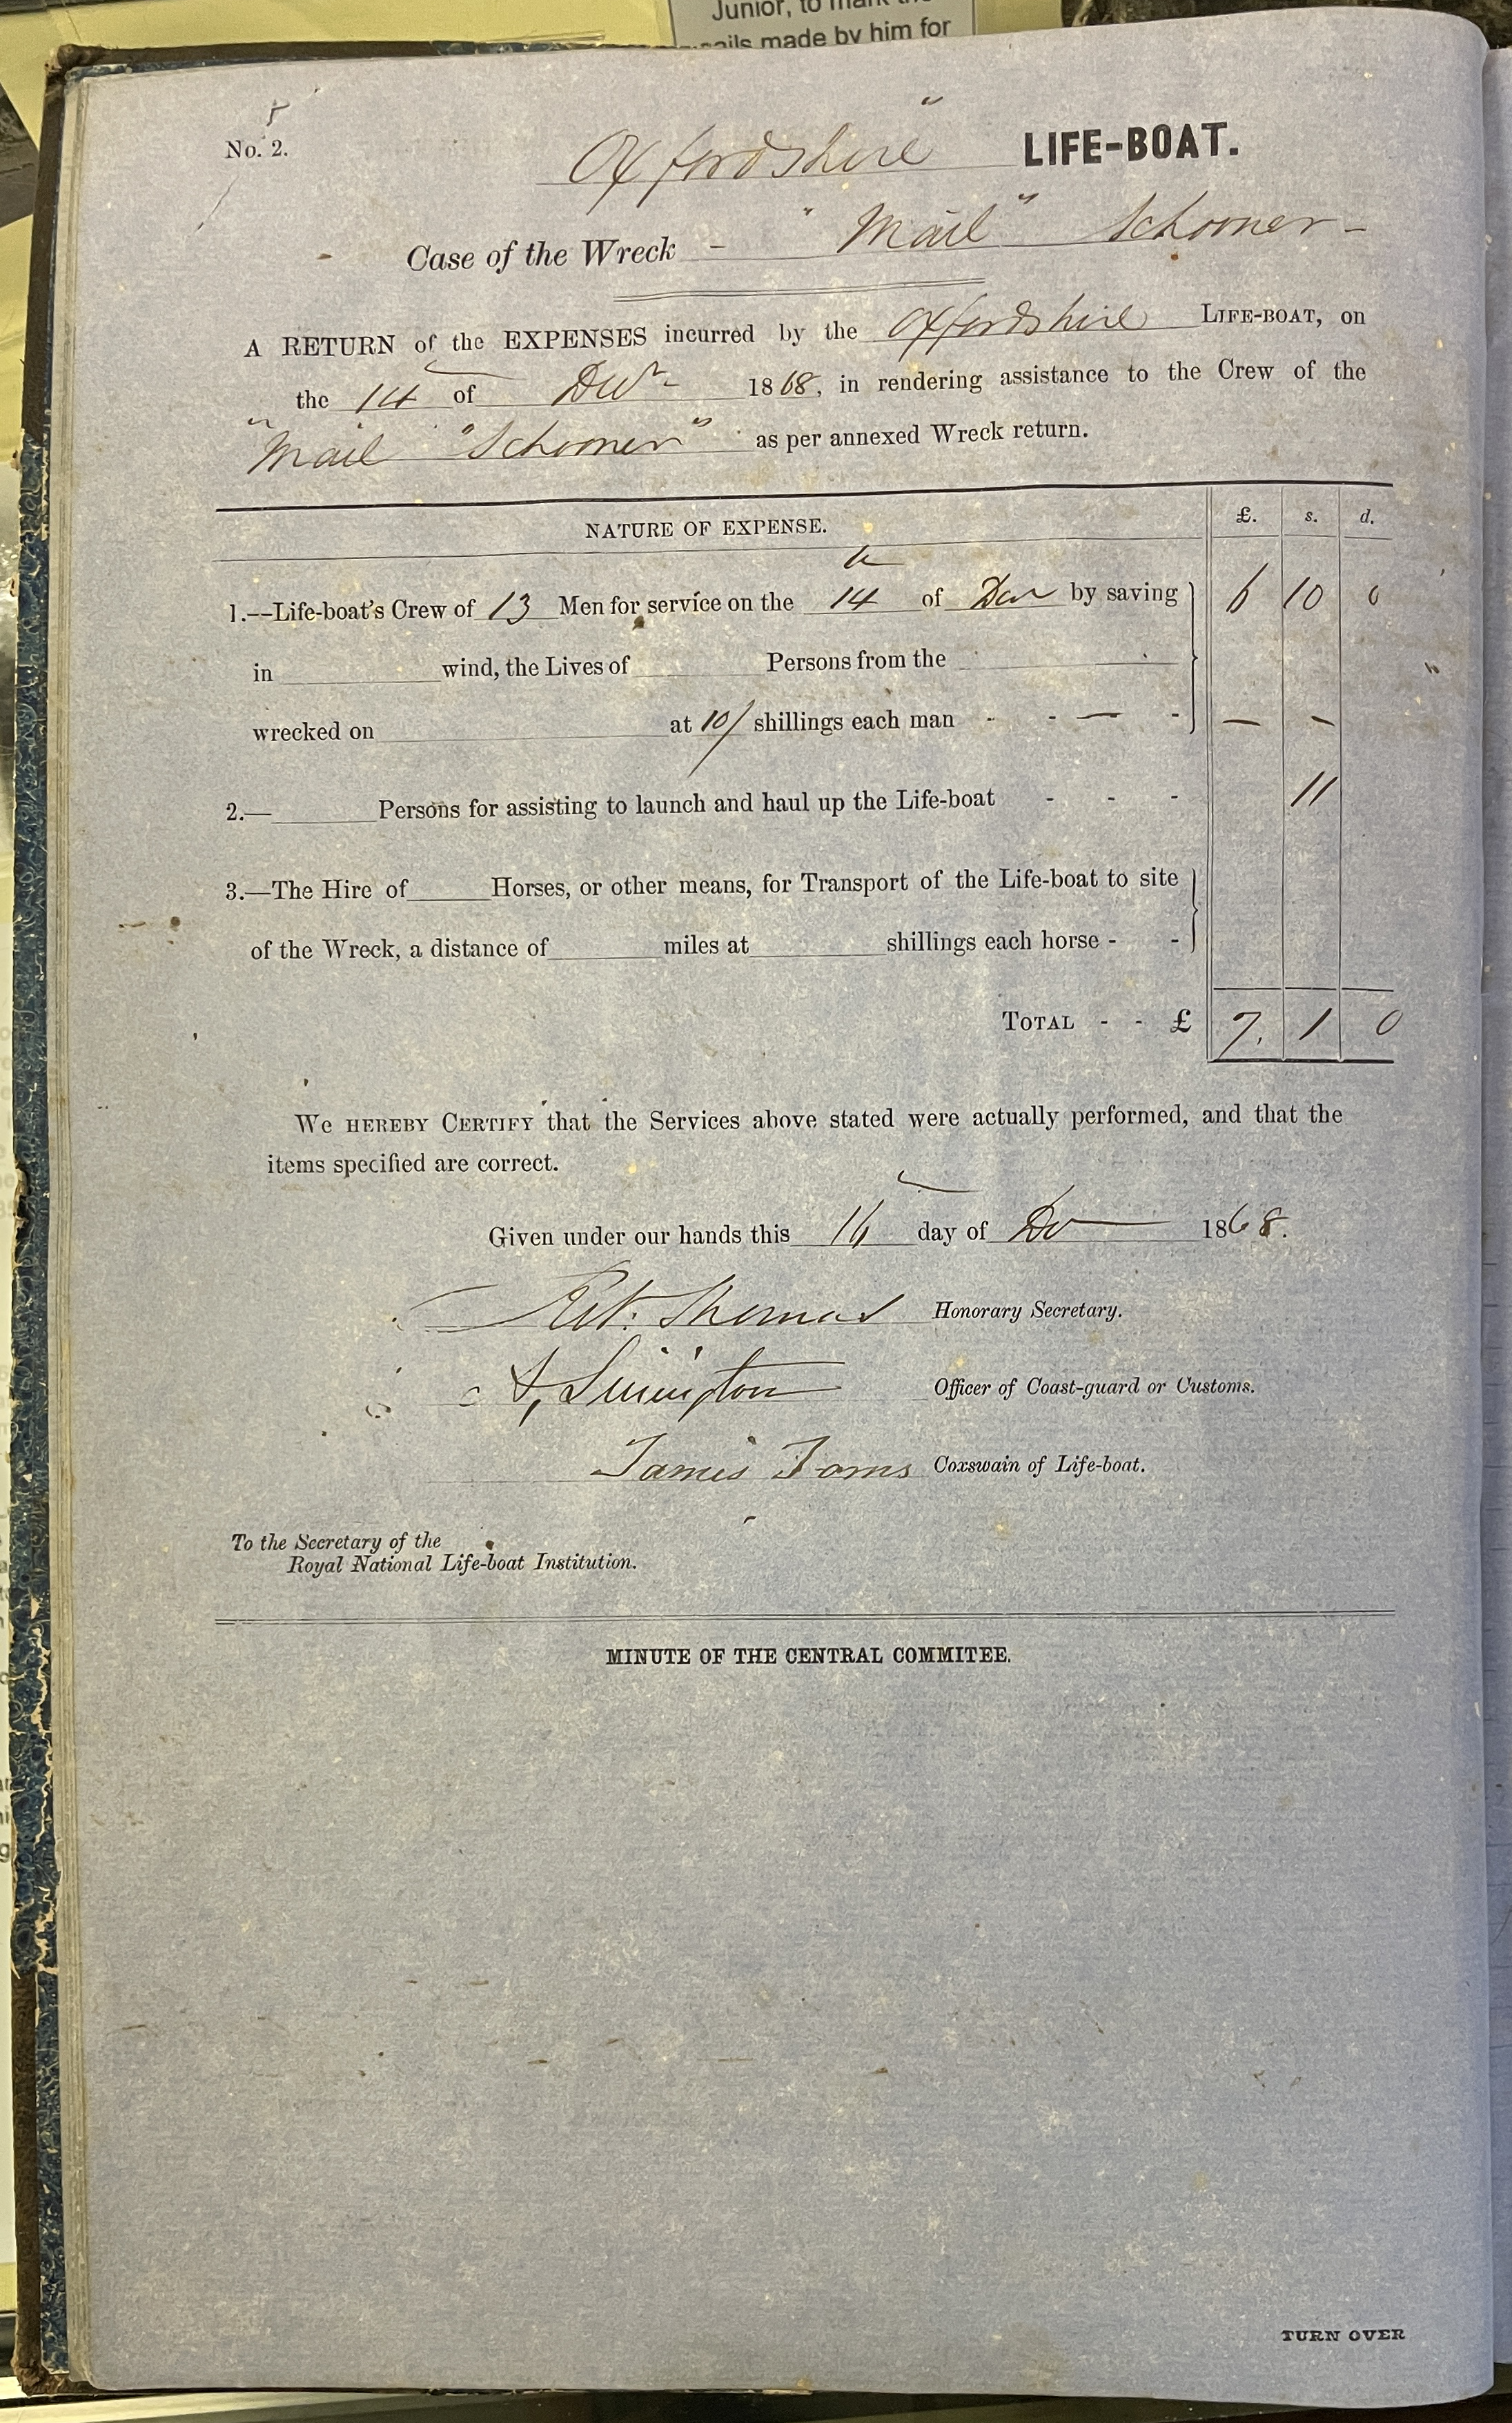 Junior, to mark the
made by him for
No. 2.
Oxfordshire" LIFE-BOAT.
Case of the Wreck - "Mail" Schooner -
A RETURN of the EXPENSES incurred by the Oxfordshire LIFE-BOAT, on
the 14 of Decr 1868, in rendering assistance to the Crew of the
"Mail "Schooner" as per annexed Wreck return.
NATURE OF EXPENSE. £. s. d.
1.—Life-boat's Crew of 13 Men for service on the 14th of Decr by saving 6 10 0
in wind, the Lives of Persons from the
wrecked on at 10/ shillings each man - - — - — -
2.— Persons for assisting to launch and haul up the Life-boat - - - 11
3.—The Hire of Horses, or other means, for Transport of the Life-boat to site
of the Wreck, a distance of miles at shillings each horse - -
TOTAL - - £ 7. 1 0
WE HEREBY CERTIFY that the Services above stated were actually performed, and that the
items specified are correct.
Given under our hands this 16 day of De 1868.
Thomas Honorary Secretary.
Officer of Coast-guard or Customs.
James Toms Coxswain of Life-boat.
To the Secretary of the
Royal National Life-boat Institution.
MINUTE OF THE CENTRAL COMMITEE.
TURN OVER